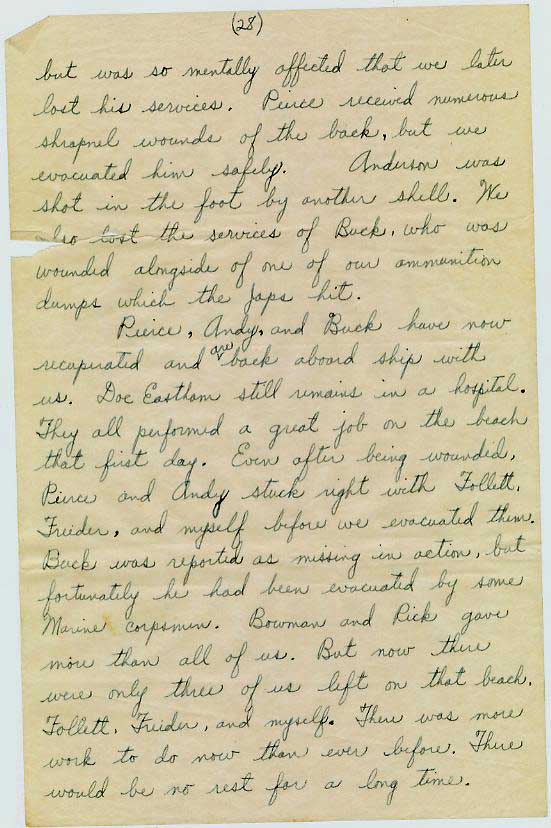 (28)
but was so mentally affected that we later
lost his services. Pierce received numerous
shrapnel wounds of the back, but we
evacuated him safely. Anderson was
shot in the foot by another shell. We
also lost the services of Buck, who was
wounded alongside of one of our ammunition
dumps which the Japs hit.
Pierce, Andy, and Buck have now
recuperated and are back aboard ship with
us. Doc Eastham still remains in a hospital.
They all performed a great job on the beach
that first day. Even after being wounded,
Pierce and Andy stuck right with Follett,
Freider, and myself before we evacuated them.
Buck was reported as missing in action, but
fortunately he had been evacuated by some
Marine corpsmen. Bowman and Rick gave
more than all of us. But now there
were only three of us left on that beach,
Follett, Freider, and myself. There was more
work to do now than ever before. There
would be no rest for a long time.